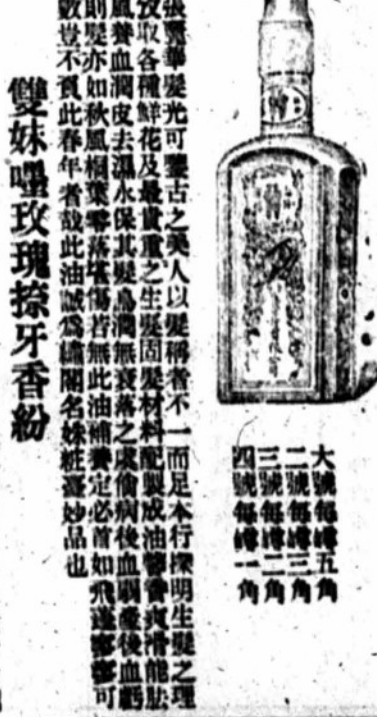 大號每罇五角
二號每罇三角
三號每罇二角
四號每罇一角
張麗華髮光可鑒古之美人以髮稱者不一而足本行探明生髮之理
取各種鮮花及最貴重之生髮固髮材料配製成油馨香爽滑能
風養血潤皮去濕水保其髮烏潤無衰落之虞倘病後血刷產後血虧
則髮亦如秋風桐葉零落堪傷若無此油補養定必首如飛蓬髮可
數豈不負此春年者哉此油誠為繡閣名姝粧臺妙品也
雙妹嚜玫瑰擦牙香粉